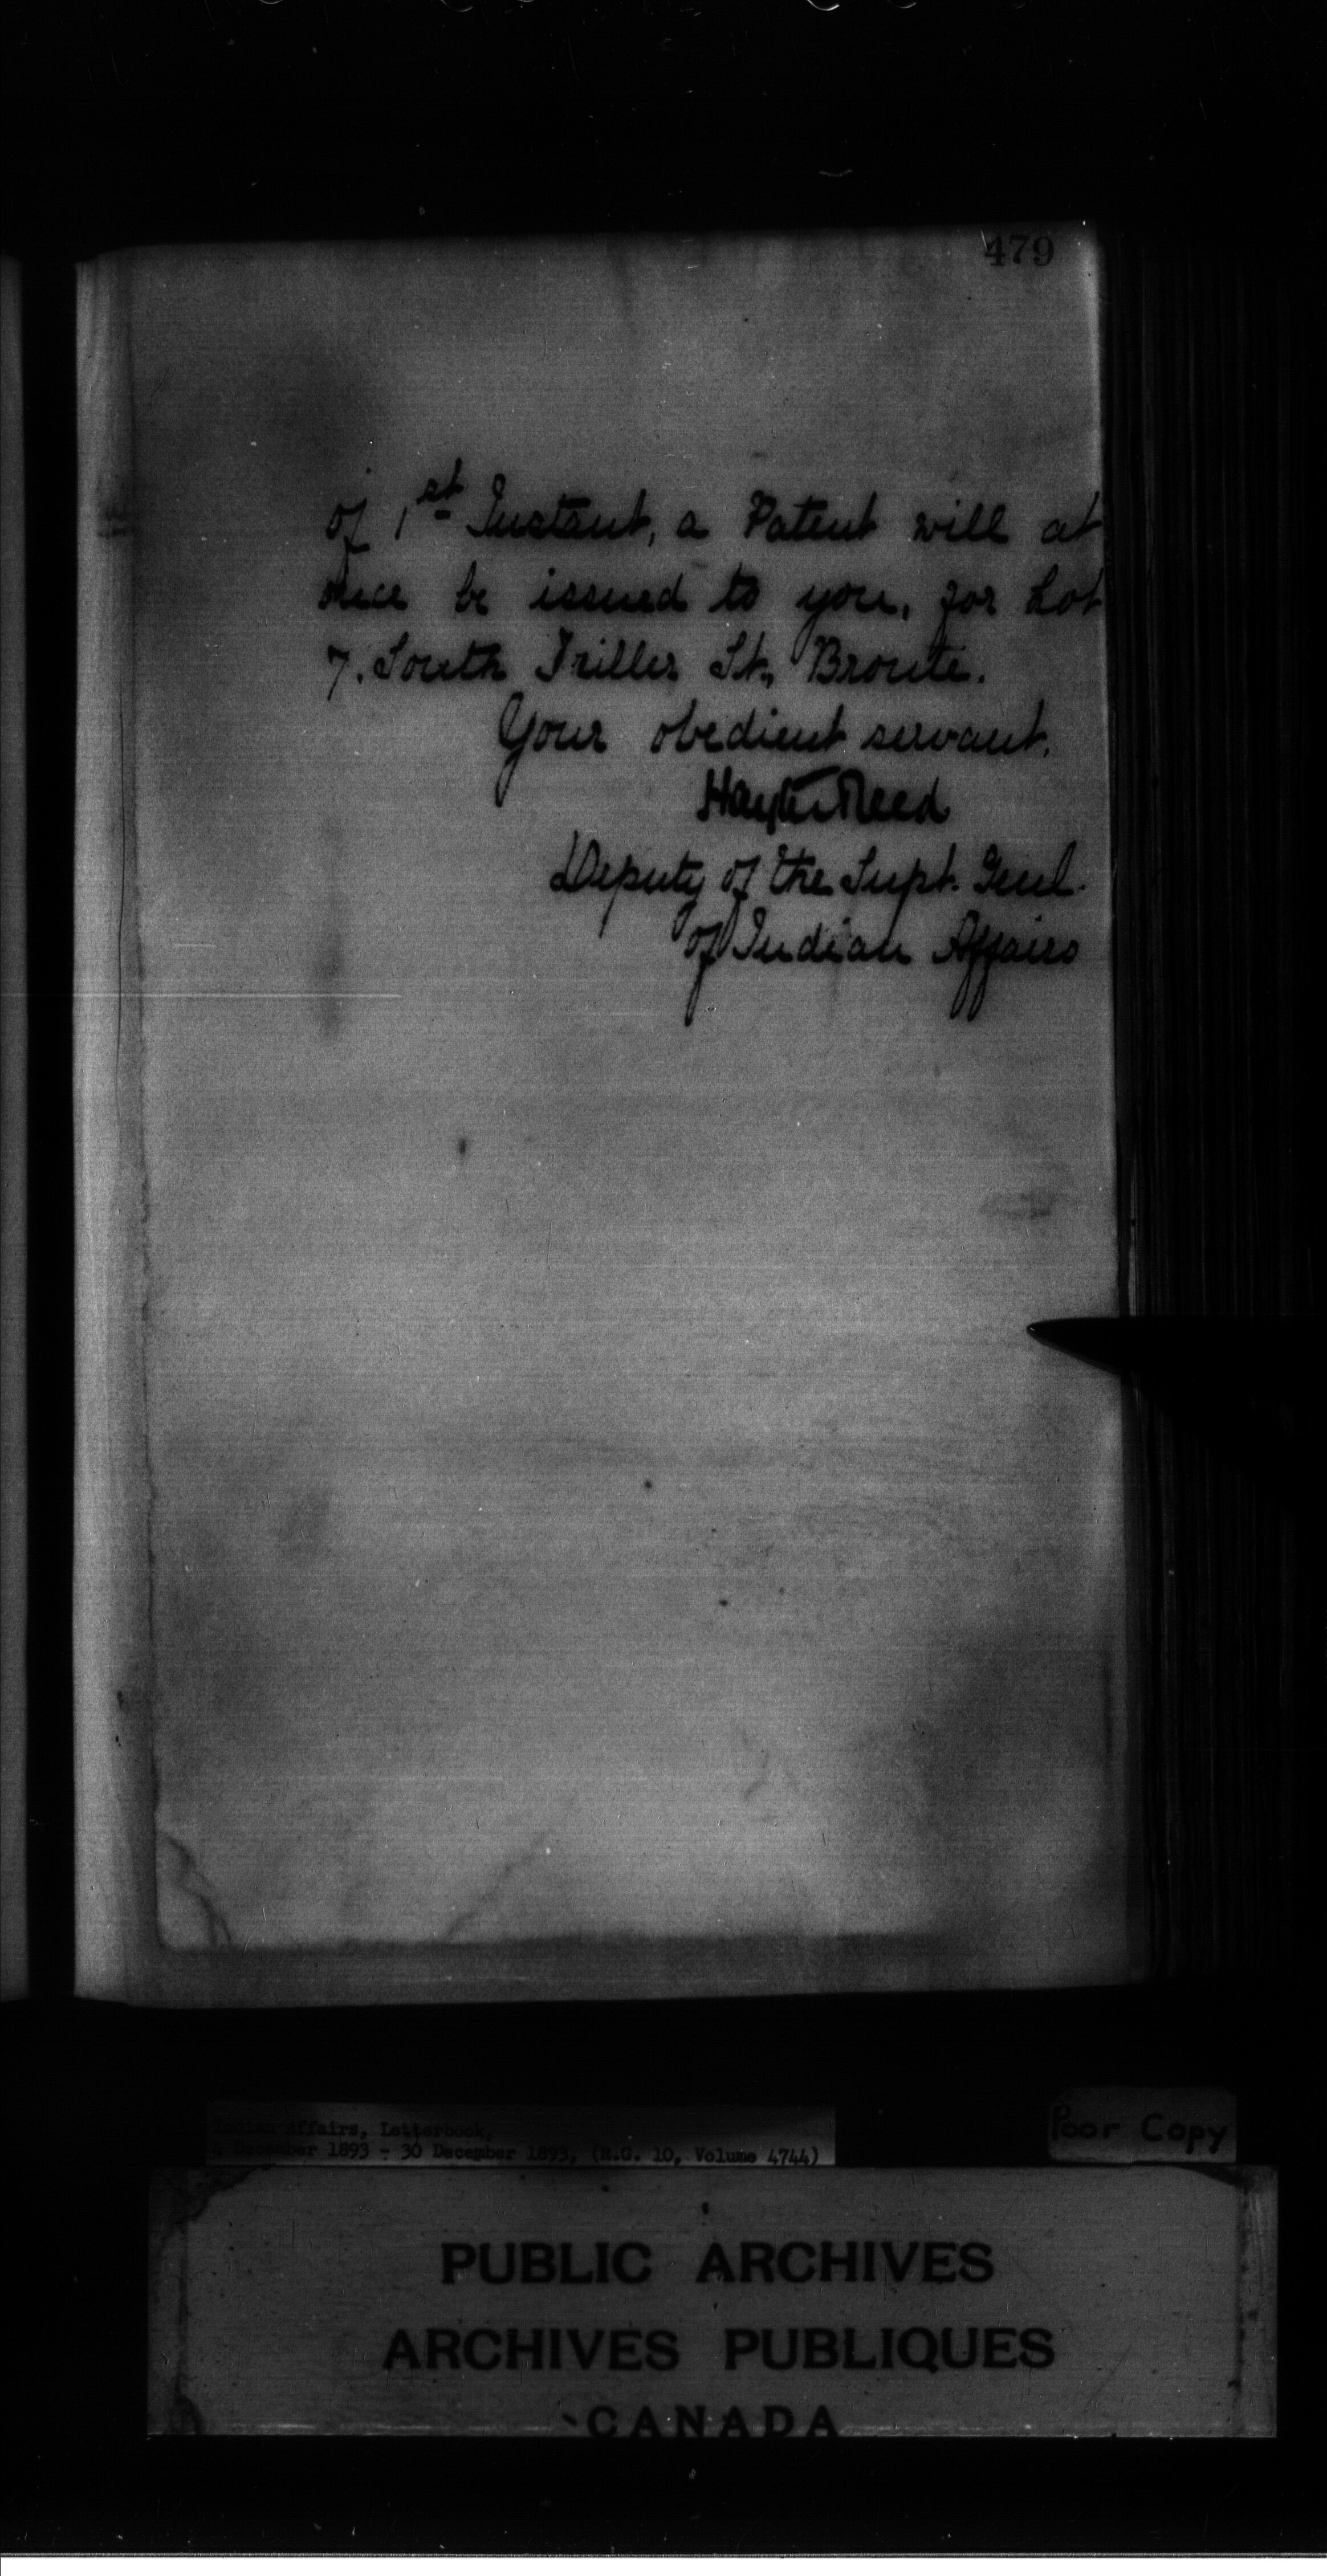 479
of 1st Instant, a Patent will at
once be issued to you, for Lot
7. South Triller St., Bronte.
Your obedient servant,
Hayter Reed
Deputy of the Supt. Genl.
of Indian Affairs
Indian Affairs, Letterbook,
4 December 1893 - 30 December 1893, (R.G. 10, Volume 4744)
Poor Copy
PUBLIC ARCHIVES
ARCHIVES PUBLIQUES
CANADA